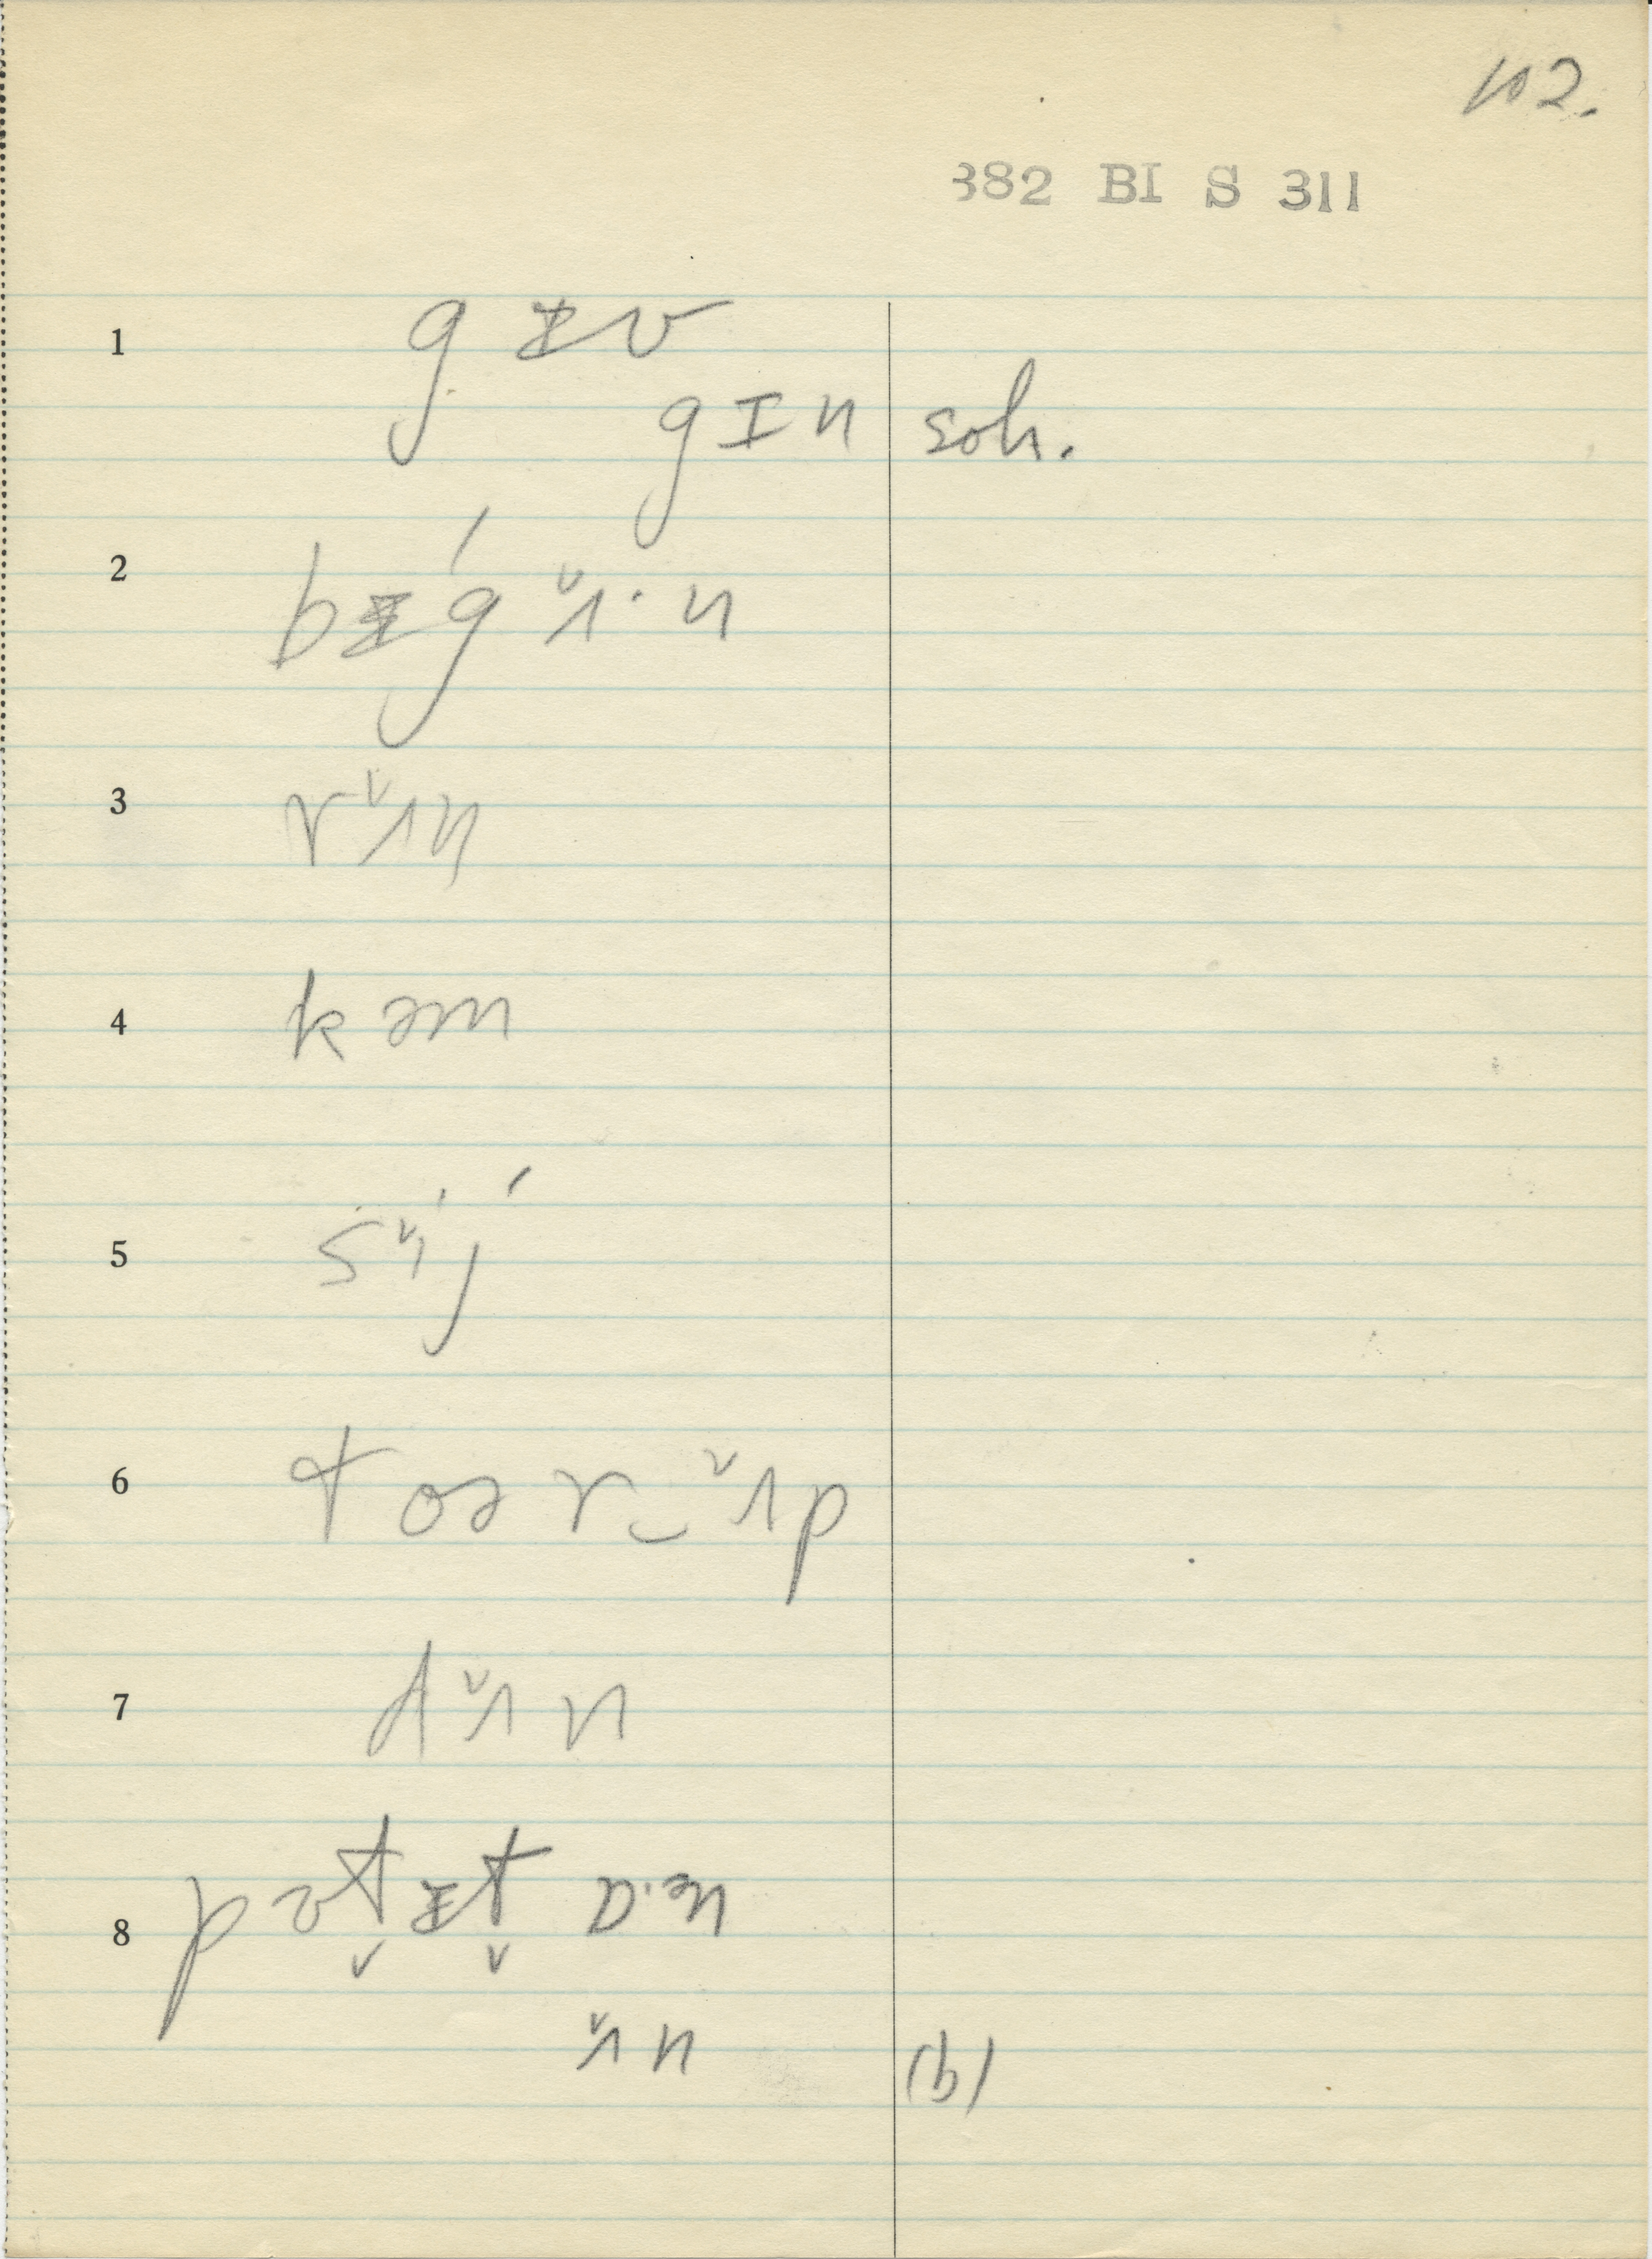 102.
382 BI S 311
1 g ᵻ v
g ɪ n soh.
2 b ᵻ́ g ʌ̌· n
3 r ʌ̌ n
4 k əm
5 s ʌ̌ j
6 t oə r‿ʌ̌ p
7 d ʌ̌ n
8 p ə t̬ ᵻ t̬ ɒ·ᵊn
ʌ̌ n (b)